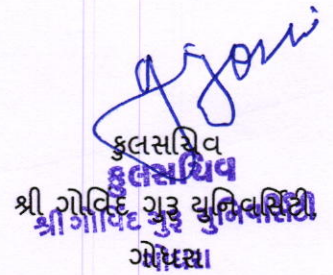 કુલસચિવ
કુલસચિવ
શ્રી ગોવિંદ ગુરૂ યુનિવર્સિટી,
શ્રી ગોવિંદ ગુરૂ યુનિવર્સિટી
ગોધરા
ગોધરા